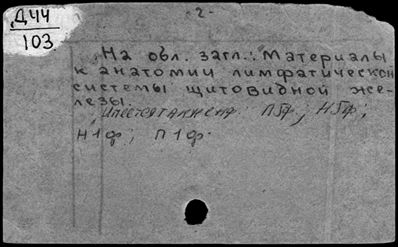 Д44
103
- 2 -
На обл. загл.: Материалы
к анатомии лимфатической
системы щитовидной же-
лезы.
П5ф; Н5ф;
Н1ф; П1ф.